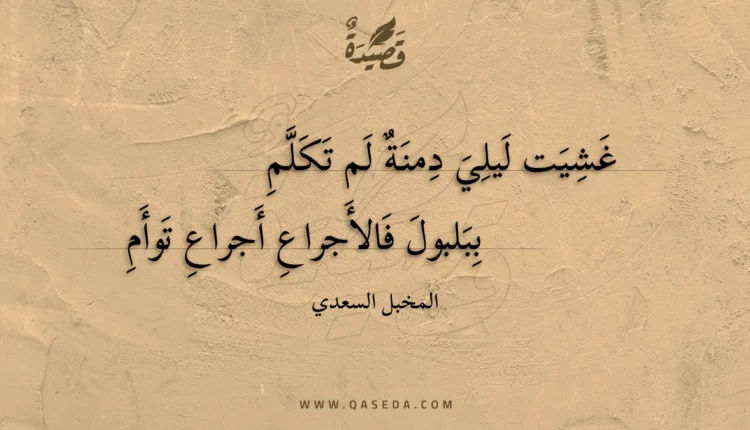 قَصِيدَةٌ
غَشِيَت لَيلِيَ دِمنَةٌ لَم تَكَلَّمِ
بِبَلبولَ فَالأَجراعِ أَجراعِ تَوأَمِ
المخبل السعدي
WWW.QASEDA.COM